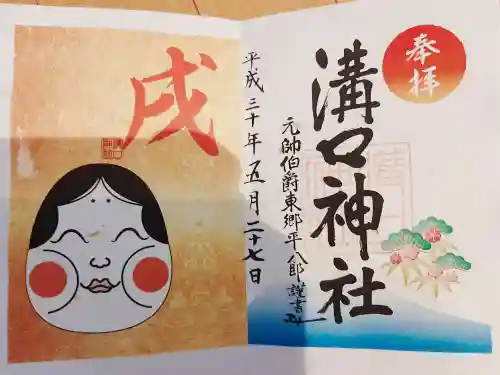 奉拝
溝口神社
元帥伯爵東郷平八郎謹書
平成三十年五月二十七日
戌